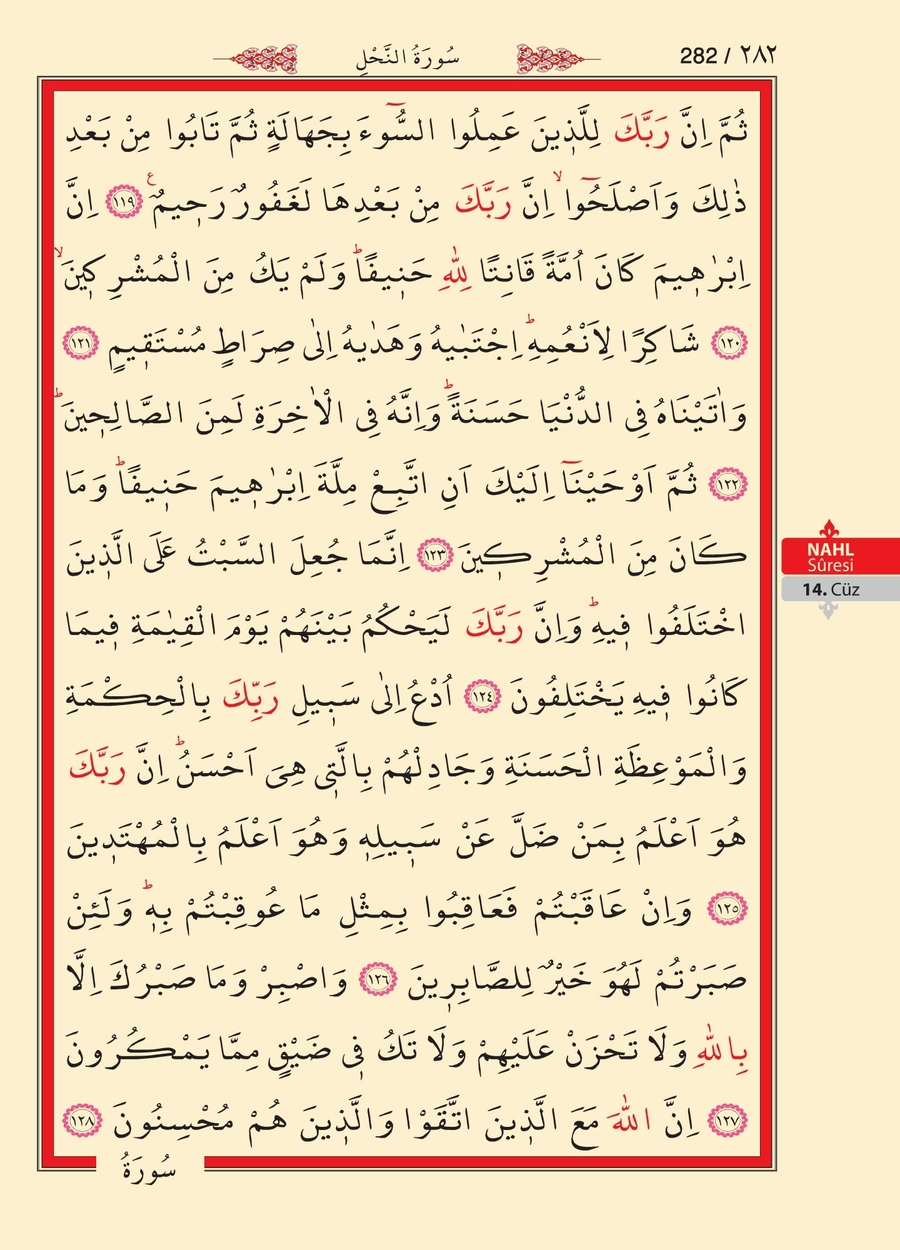 282 / ٢٨٢
سُورَةُ النَّحْلِ
ثُمَّ اِنَّ رَبَّكَ لِلَّذ۪ينَ عَمِلُوا السُّٓوءَ بِجَهَالَةٍ ثُمَّ تَابُوا مِنْ بَعْدِ
ذٰلِكَ وَاَصْلَحُٓواۙ اِنَّ رَبَّكَ مِنْ بَعْدِهَا لَغَفُورٌ رَح۪يمٌ۟ ﴿١١٩﴾ اِنَّ
اِبْرٰه۪يمَ كَانَ اُمَّةً قَانِتًا لِلّٰهِ حَن۪يفًاۜ وَلَمْ يَكُ مِنَ الْمُشْرِك۪ينَۙ
﴿١٢٠﴾ شَاكِرًا لِاَنْعُمِهِۜ اِجْتَبٰيهُ وَهَدٰيهُ اِلٰى صِرَاطٍ مُسْتَق۪يمٍ ﴿١٢١﴾
وَاٰتَيْنَاهُ فِي الدُّنْيَا حَسَنَةًۜ وَاِنَّهُ فِي الْاٰخِرَةِ لَمِنَ الصَّالِح۪ينَۜ
﴿١٢٢﴾ ثُمَّ اَوْحَيْنَٓا اِلَيْكَ اَنِ اتَّبِعْ مِلَّةَ اِبْرٰه۪يمَ حَن۪يفًاۜ وَمَا
كَانَ مِنَ الْمُشْرِك۪ينَ ﴿١٢٣﴾ اِنَّمَا جُعِلَ السَّبْتُ عَلَى الَّذ۪ينَ
اخْتَلَفُوا ف۪يهِۜ وَاِنَّ رَبَّكَ لَيَحْكُمُ بَيْنَهُمْ يَوْمَ الْقِيٰمَةِ ف۪يمَا
كَانُوا ف۪يهِ يَخْتَلِفُونَ ﴿١٢٤﴾ اُدْعُ اِلٰى سَب۪يلِ رَبِّكَ بِالْحِكْمَةِ
وَالْمَوْعِظَةِ الْحَسَنَةِ وَجَادِلْهُمْ بِالَّت۪ي هِيَ اَحْسَنُۜ اِنَّ رَبَّكَ
هُوَ اَعْلَمُ بِمَنْ ضَلَّ عَنْ سَب۪يلِه۪ وَهُوَ اَعْلَمُ بِالْمُهْتَد۪ينَ
﴿١٢٥﴾ وَاِنْ عَاقَبْتُمْ فَعَاقِبُوا بِمِثْلِ مَا عُوقِبْتُمْ بِه۪ۜ وَلَئِنْ
صَبَرْتُمْ لَهُوَ خَيْرٌ لِلصَّابِر۪ينَ ﴿١٢٦﴾ وَاصْبِرْ وَمَا صَبْرُكَ اِلَّا
بِاللّٰهِ وَلَا تَحْزَنْ عَلَيْهِمْ وَلَا تَكُ ف۪ي ضَيْقٍ مِمَّا يَمْكُرُونَ
﴿١٢٧﴾ اِنَّ اللّٰهَ مَعَ الَّذ۪ينَ اتَّقَوْا وَالَّذ۪ينَ هُمْ مُحْسِنُونَ ﴿١٢٨﴾
سُورَةُ
NAHL
Sûresi
14. Cüz